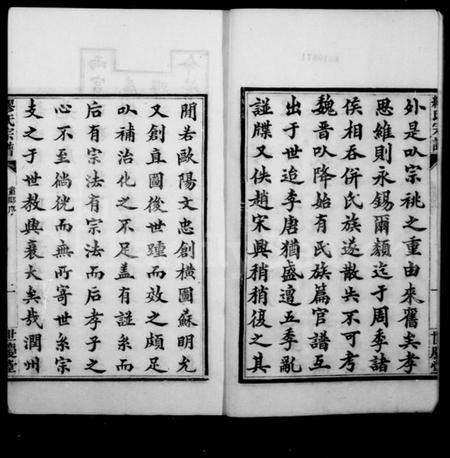 外是以宗祧之重由來舊矣孝
思維則永錫爾類迄于周季諸
侯相吞併氏族遂散共不可考
魏晉以降始有氏族篇官譜互
出于世迨李唐猶盛遭五季亂
譜牒又佚趙宋興稍稍復之其
間若歐陽文忠創橫圖蘇明允
又創直圖後世踵而效之頗足
以補治化之不足蓋有譜系而
后有宗法有宗法而后孝子之
心不至徜徨而無所寄世系宗
支之于世教興衰大矣哉潤州
繆氏宗譜
世慶堂